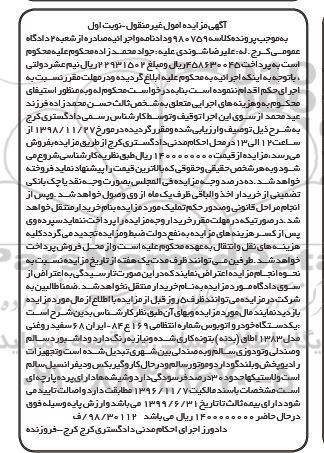 آگهی مزایده اموال غیر منقول-نوبت اول
به موجب پرونده کلاسه ۹۸۰۷۵۹ و دادنامه و اجرائیه صادره از شعبه ۲ دادگاه
عمومی کرج . له: علیرضا شوندی علیه: جواد محمدزاده محکوم علیه محکوم
است به پرداخت ۴۵۸۶۳۰۰۴۵ ریال و مبلغ ۲۲۹۳۱۵۰۲ ریال نیم عشر دولتی
، باتوجه به اینکه اجرائیه به محکوم علیه ابلاغ گردیده و در مهلت مقرر نسبت به
اجرای حکم اقدام ننموده است بنا به درخواست محکوم له و به منظور استیفای
محکوم به و هزینه های اجرایی متعلق به شخص ثالث حسن محمدزاده فرزند
عید محمد از سوی این اجرا توقیف و توسط کارشناس رسمی دادگستری کرج
به شرح ذیل توصیف و ارزیابی شده و مقرر گردیده در مورخ ۱۳۹۸/۱۱/۲۷ از
ساعت ۱۲ الی ۱۳ در محل احکام مدنی دادگستری کرج از طریق مزایده بفروش
می رسد، مزایده از قیمت ۱۴۰۰۰۰۰۰۰۰ ریال طبق نظریه کارشناسی شروع می
شود و به هر شخص حقیقی و حقوقی که بالاترین قیمت را پیشنهاد نماید فروخته
خواهد شد . ده درصد وجه مزایده فی المجلس بصورت وجه نقد یا چک بانکی
تضمینی از خریدار اخذ و الباقی ظرف یک ماه از وی وصول خواهد شد . و پس از
انجام مراحل قانونی و صدور حکم تملیک مورد مزایده بنام خریدار منتقل خواهد
شد . در صورتیکه در مهلت مقرر خریدار وجه مزایده را پرداخت ننماید سپرده وی
پس از کسر هزینه های مزایده به نفع دولت ضبط و مزایده تجدید می گردد کلیه
هزینه های نقل و انتقال به عهده محکوم علیه است و از محل فروش پرداخت
خواهد شد . طرفین می توانند ظرف مدت یک هفته از تاریخ مزایده نسبت به
نحوه انجام مزایده اعتراض نمایند که در این صورت تا رسیدگی به اعتراض از
سوی دادگاه مورد مزایده به نام خریدار منتقل نخواهد شد. ضمنا طالبین به
شرکت در مزایده می توانند ظرف ۵ روز قبل از مزایده با اطلاع از مال مورد مزایده
بازدید نمایند مال مورد مزایده و بهای آن طبق نظر کارشناس بدین شرح است
:یکدستگاه خودرو اتوبوس شماره انتظامی ۱۶۹ ع ۸۴-ایران ۶۸ سفید روغنی
مدل ۱۳۸۳ اطاق (بدنه) بتونه کاری شده و نیاز به رنگ دارد و داشبورد سالم
و صندلی و تودوزی سالم و به صندلی بین شهری تبدیل شده است و تجهیزات
رادیو پخش و بلندگو دارد و موتور سالم و در حال کار و گیربکس و دیفرانسیل سالم
است و لاستیکها حدود ۳۰ درصد فرسودگی دارد و شیشه ها دارای پرده پارچه ای
است مشخصات با سند مالکیت ۱۳۹۶/۱۱/۷ مطابقت دارد و اصالت تایید می
شود دارای بیمه ثالث تا تاریخ ۱۳۹۹/۶/۳۱ می باشد و ارزش پایه وسیله فوق
درحال حاضر ۱۴۰۰۰۰۰۰۰۰ ریال می باشد ۹۸/۳۰۱۱۲/ف
دادورز اجرای احکام مدنی دادگستری کرج کرج-فروزنده